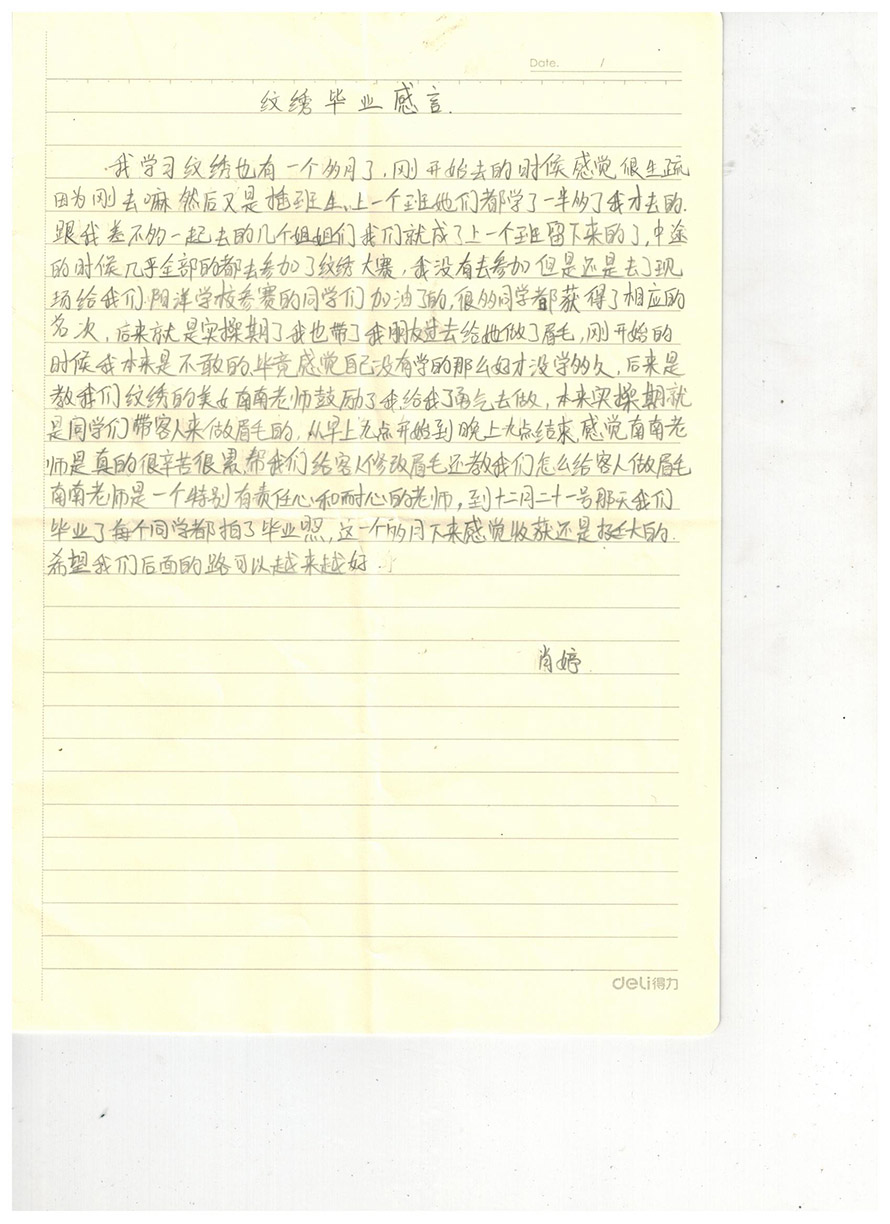 Date.        /
纹绣毕业感言.
我学习纹绣也有一个多月了,刚开始去的时候感觉很生疏
因为刚去嘛然后又是插班生、上一个班她们都学了一半多了我才去的.
跟我差不多一起去的几个姐姐们我们就成了上一个班留下来的了,中途
的时候几乎全部的都去参加了纹绣大赛,我没有去参加但是还是去了现
场给我们阳洋学校参赛的同学们加油了的,很多同学都获得了相应的
名次,后来就是实操期了我也带了我朋友过去给她做了眉毛,刚开始的
时候我本来是不敢的,毕竟感觉自己没有学的那么好才没学多久,后来是
教我们纹绣的美女南南老师鼓励了我,给我了勇气去做,本来实操期就
是同学们带客人来做眉毛的,从早上九点开始到晚上九点结束,感觉南南老
师是真的很辛苦很累,帮我们给客人修改眉毛还教我们怎么给客人做眉毛
南南老师是一个特别有责任心和耐心的老师,到十二月二十一号那天我们
毕业了每个同学都拍了毕业照,这一个多月下来感觉收获还是挺大的.
希望我们后面的路可以越来越好.
肖婷
deli得力